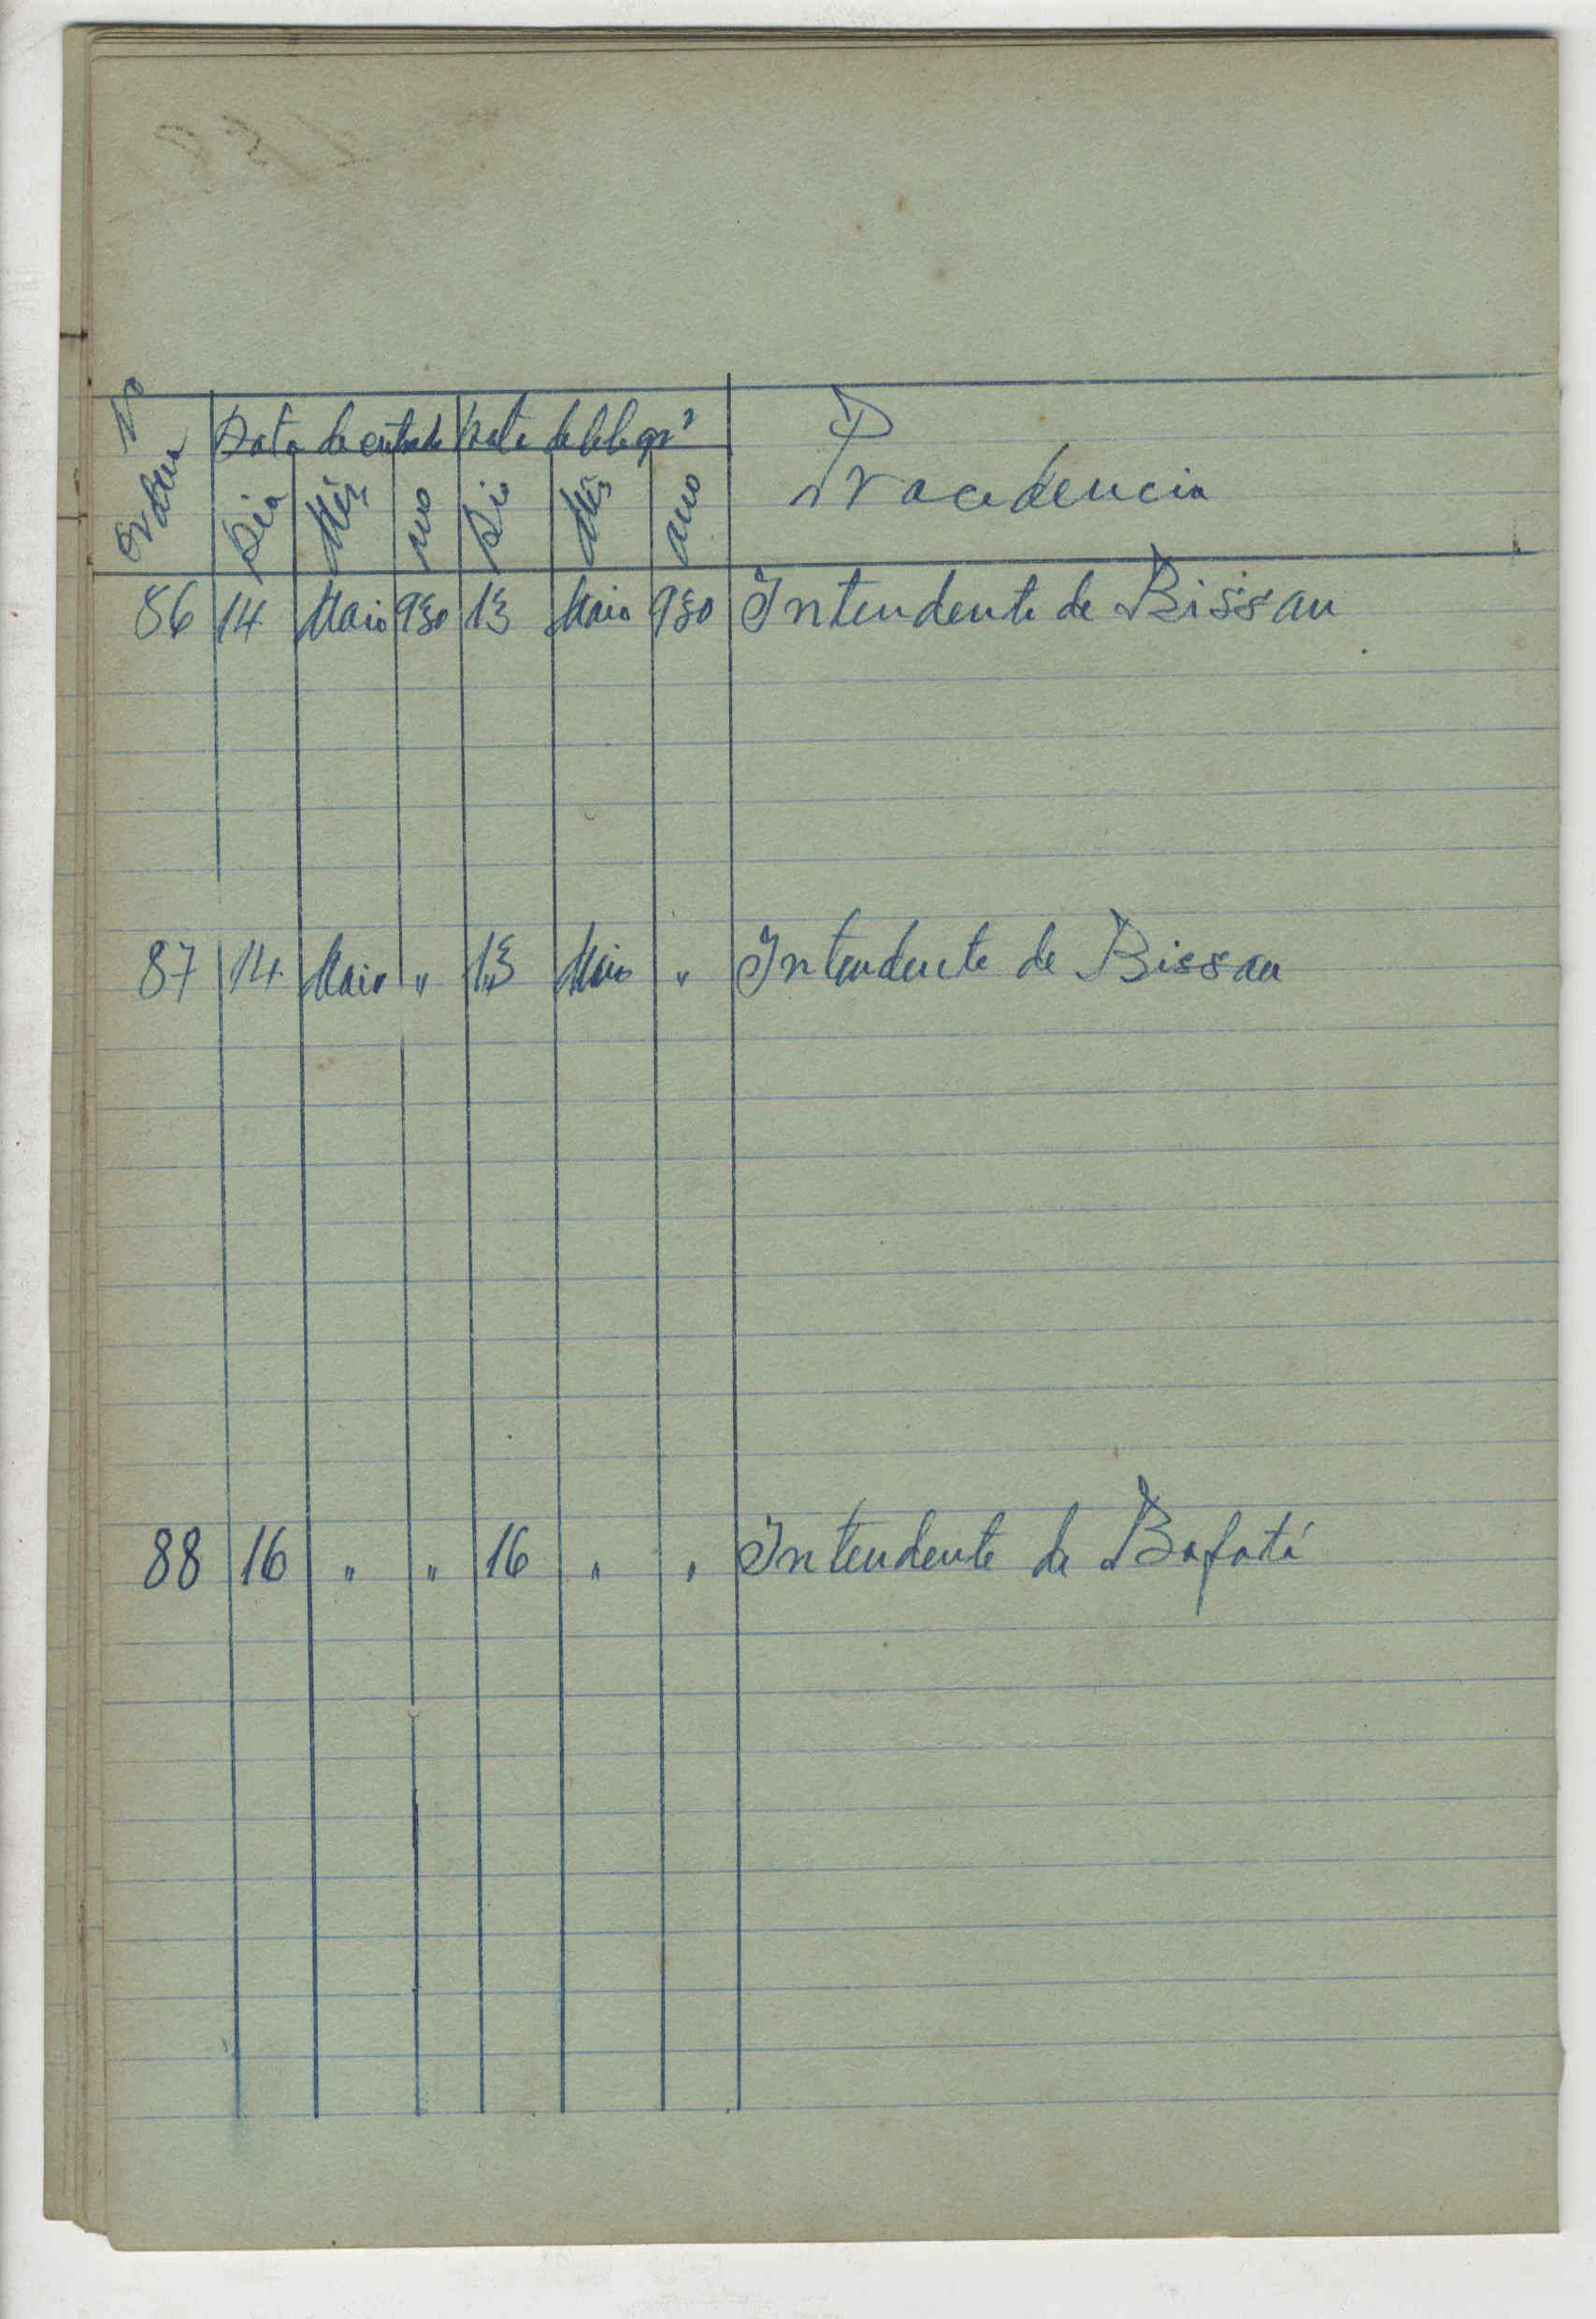 Nº Ordem Data de entrada Data de telegrª Procedencia
Dia Mês ano Dia Mês ano
86 14 Maio 930 13 Maio 930 Intendente de Bissau
87 14 Maio " 13 Maio " Intendente de Bissau
88 16 " " 16 " " Intendente de Bafatá